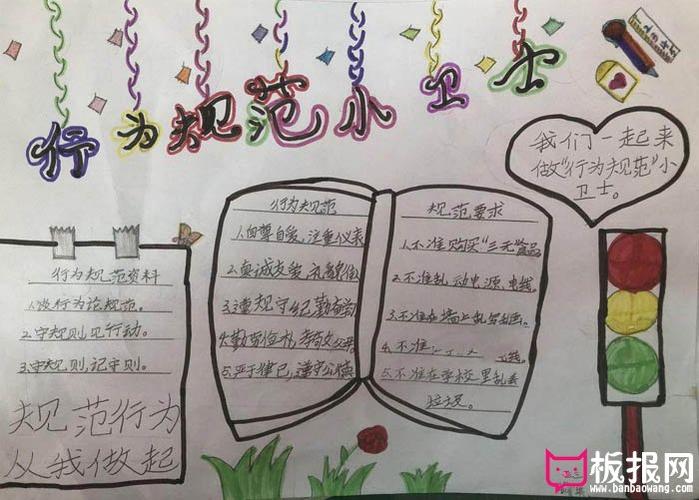 行为规范小卫士
我们一起来
做"行为规范"小
卫士。
行为规范资料
1.谈行为论规范。
2.守规则见行动。
3.守规则,记守则。
规范行为
从我做起
行为规范
1.自尊自爱,注重仪表
2.真诚友爱,礼貌待
3.遵规守纪勤奋
4.勤劳俭朴,孝敬父母
5.严于律已,遵守公德
规范要求
1.不准购买"三无"食品
2.不准乱动电源、电线。
3.不准在墙上乱写乱画。
4.不准
5.不准在学校里乱丢
垃圾。
板报网
www.banbaowang.com